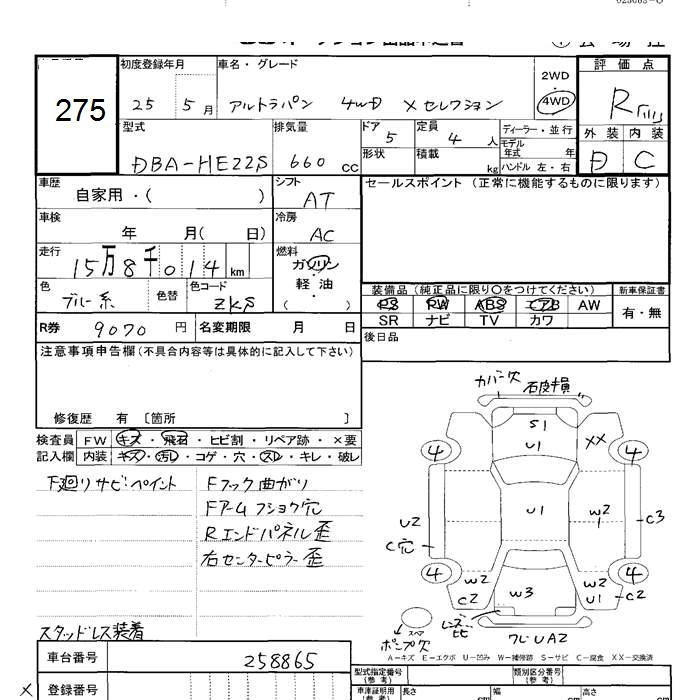 023083-0
275
初度登録年月
25 5 月
車名・グレード
アルトラパン 4WD Xセレクション
2WD
4WD
評価点
R
外装 内装
D C
型式
DBA-HE22S
排気量
660 cc
ドア 5
形状
定員 4 人
積載 kg
ディーラー・並行
モデル年式 年
ハンドル 左・右
車歴
自家用・( )
シフト
AT
セールスポイント (正常に機能するものに限ります)
車検
年 月( 日)
冷房
AC
走行
15万8千014 km
燃料
ガソリン
軽油
( )
色
ブルー系
色替
色コード
ZKS
装備品 (純正品に限り○をつけてください)
PS PW ABS エアB AW
SR ナビ TV カワ
新車保証書
有・無
R券 9070 円
名変期限 月 日
後日品
注意事項申告欄(不具合内容等は具体的に記入して下さい)
修復歴 有 〔箇所 〕
検査員 FW キズ・飛石・ヒビ割・リペア跡・×要
記入欄 内装 キズ・汚レ・コゲ・穴・スレ・キレ・破レ
下廻りサビ・ペイント
Fフック曲がり
Fアームフショク穴
Rエンドパネル歪
右センターピラー歪
スタッドレス装着
カバー欠 石皮損
S1
U1
XX
4
4
U2
C穴
U1
W2
1
C3
4
4
W2
C2
W3
W2
U1
C2
レンズヒビ
スペア
ポンプ欠
フレUA2
A-キズ E-エクボ U-凹み W-補修跡 S-サビ C-腐食 XX-交換済
車台番号 258865
型式指定番号
(参考)
類別区分番号
(参考)
× 登録番号
車庫証明用
(参考)
長さ cm
幅 cm
高さ cm